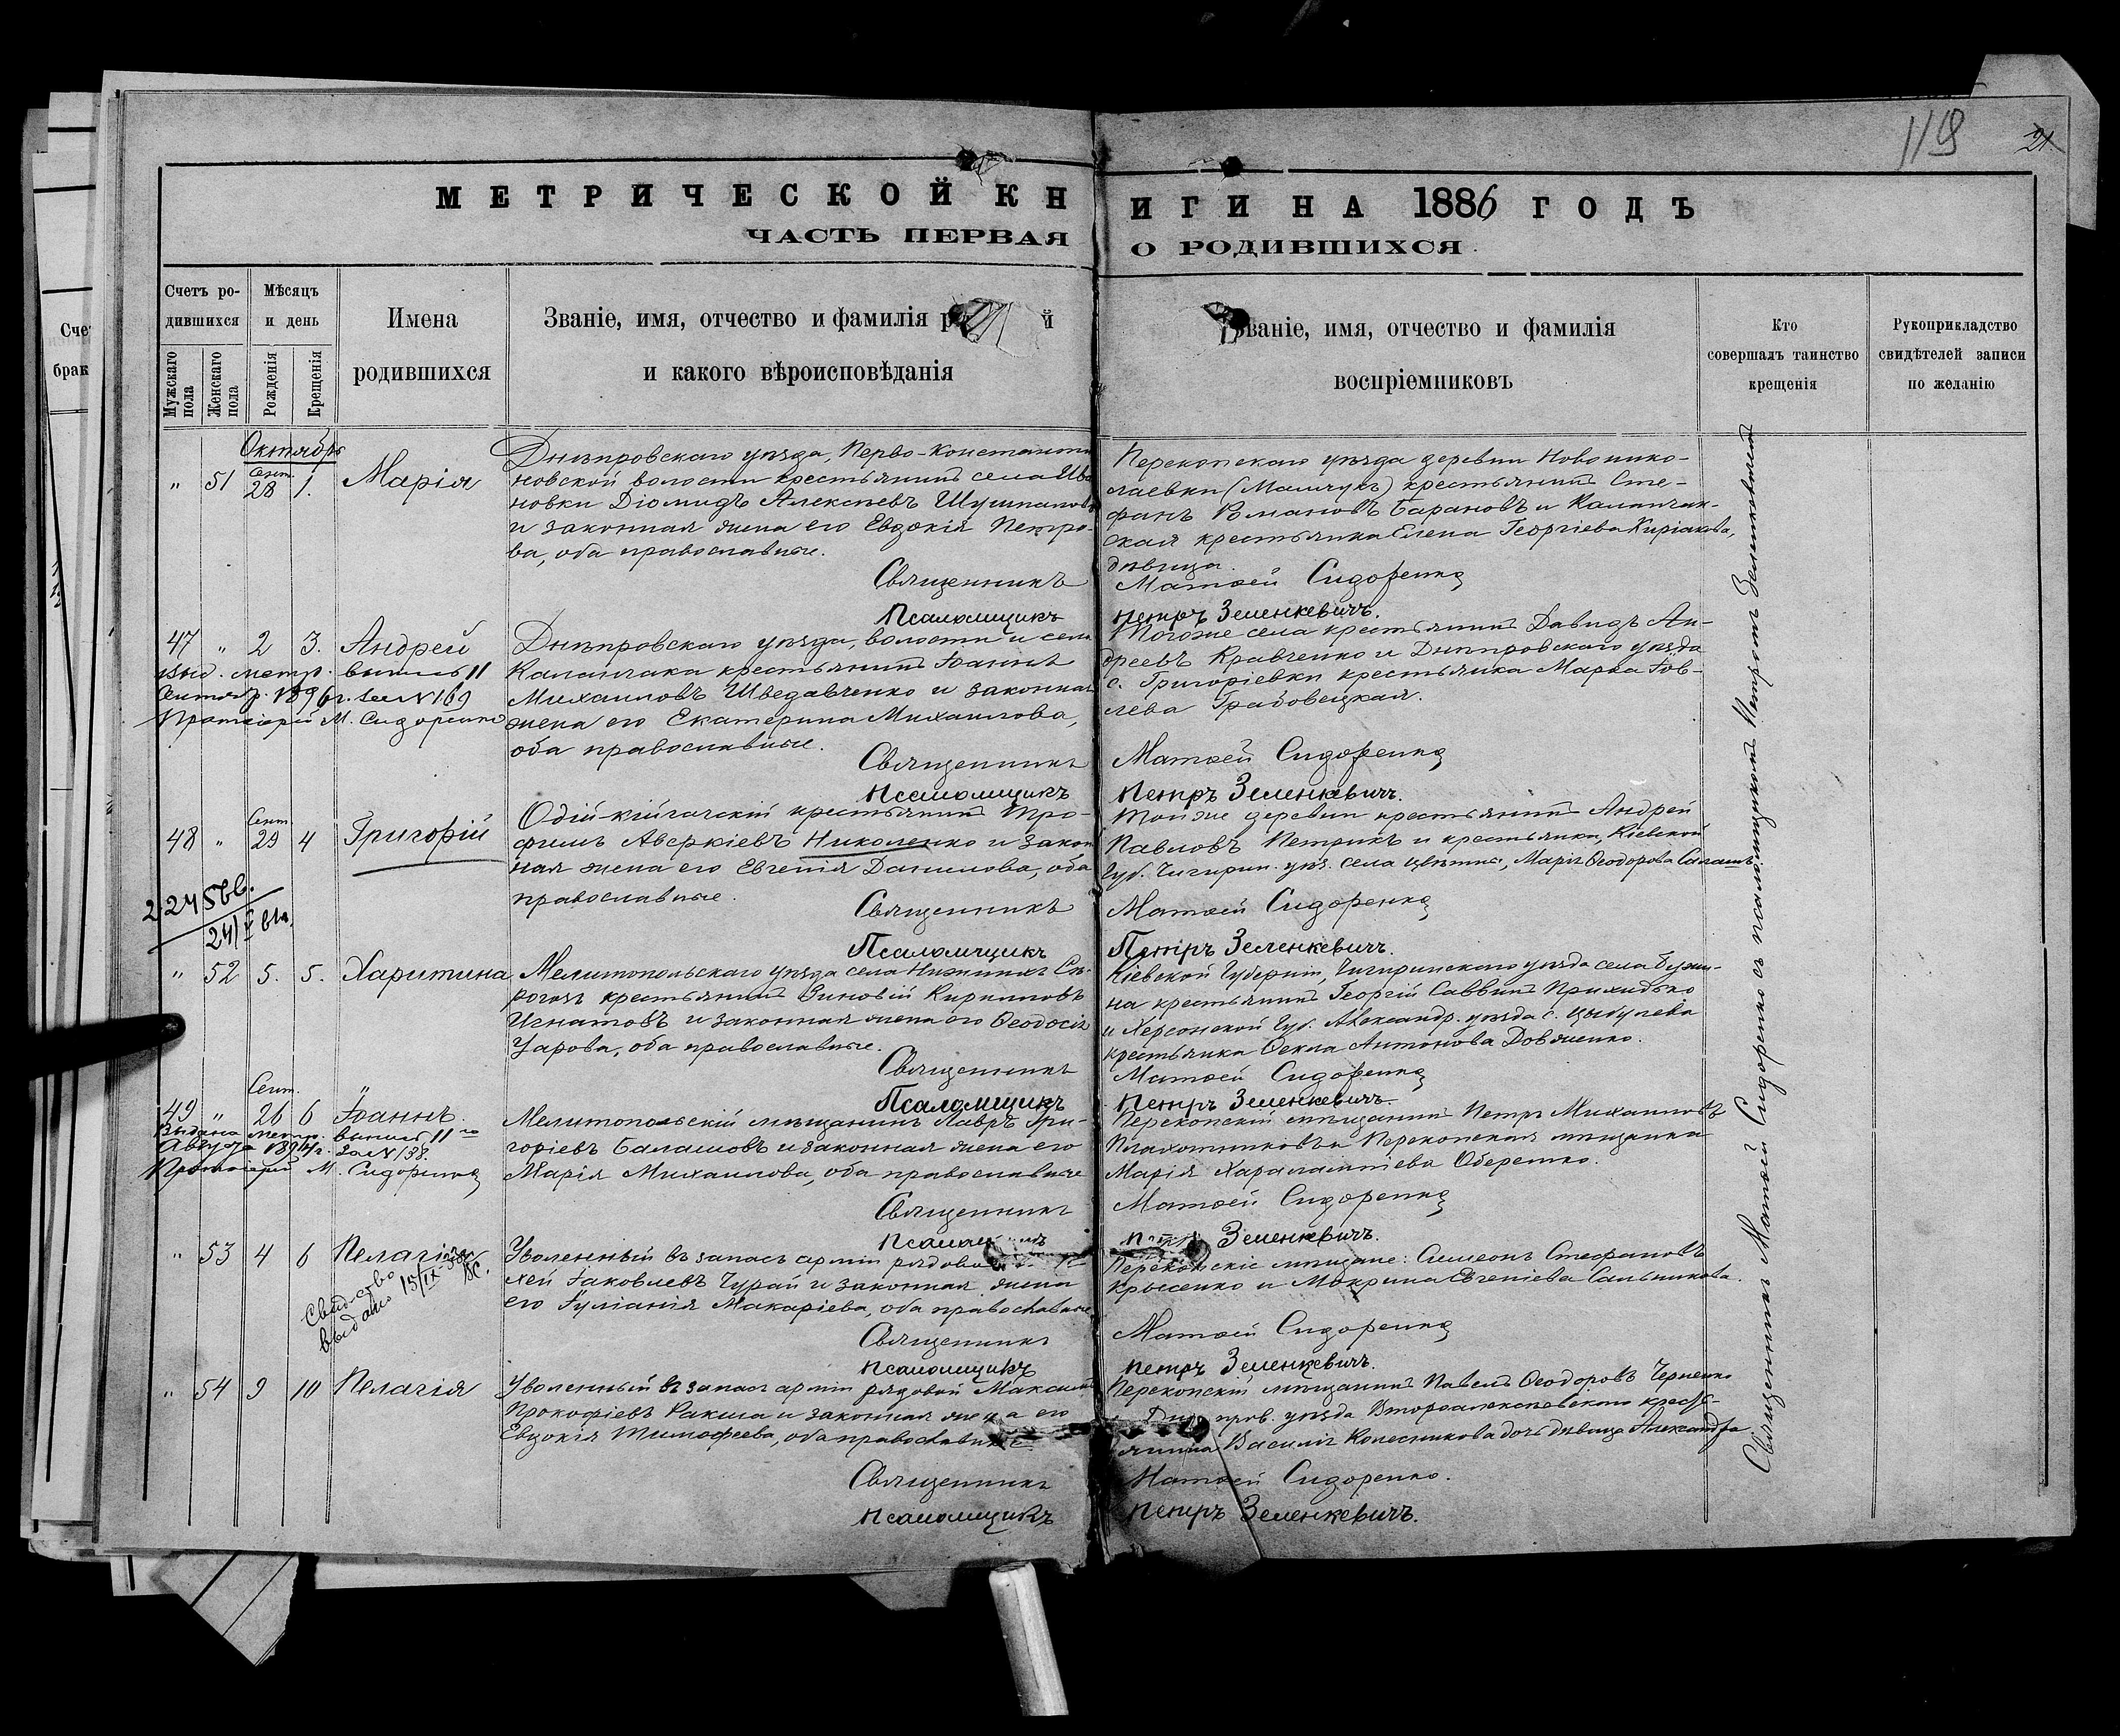 119 21.
МЕТРИЧЕСКОЙ КНИГИ НА 1886 ГОДЪ
ЧАСТЬ ПЕРВАЯ О РОДИВШИХСЯ.
Счетъ ро-
дившихся
Мужскаго пола
Женскаго пола
Мѣсяцъ
и день
Рожденія
Крещенія
Имена
родившихся
Званіе, имя, отчество и фамилія р й
и какого вѣроисповѣданія
Званіе, имя, отчество и фамилія
воспріемниковъ
Кто
совершалъ таинство
крещенія
Рукоприкладство
свидѣтелей записи
по желанію
Октябрь
Сент.
" 51 28 1. Марія
Днѣпровскаго уѣзда, Перво-Константи
новской волости крестьянинъ села Ива
новки Діомидъ Алексѣевъ Шушпановъ
и законная жена его Евдокія Петро-
ва, оба православные.
Перекопскаго уѣзда деревни Новонико-
лаевки (Мамчукъ) крестьянинъ Сте-
фанъ Романовъ Барановъ и Каланчак-
ская крестьянка Елена Георгіева Киріакова,
дѣвица.
Священникъ Матѳей Сидоренко
Псаломщикъ Петръ Зеленкевичъ.
47 " 2 3. Андрей
Выд. метр. выпись 11
Октяб. 1896 г. за №169
Протоіерей М. Сидоренко
Днѣпровскаго уѣзда, волости и села
Каланчака крестьянинъ Іоаннъ
Михаиловъ Шведавченко и законная
жена его Екатерина Михаилова,
оба православные.
Тогоже села крестьянинъ Давидъ Ан-
дреевъ Кравченко и Днѣпровскаго уѣзда
с. Григоріевки крестьянка Марѳа Іов-
лева Грабовецкая.
Священникъ Матѳей Сидоренко
Псаломщикъ Петръ Зеленкевичъ.
Сент.
48 " 29 4 Григорій
Одій-кійгачскій крестьянинъ Тро-
фимъ Аверкіевъ Николенко и закон
ная жена его Евгенія Данилова, оба
православные.
Тойже деревни крестьянинъ Андрей
Павловъ Петрикъ и крестьянка, Кіевской
губ. Чигирин. уѣз. села Цвѣтна, Марія Ѳеодорова Саламъ.
Священникъ Матѳей Сидоренко
Псаломщикъ Петръ Зеленкевичъ.
" 52 5. 5. Харитина
Мелитопольскаго уѣзда села Нижнихъ Сѣ-
рогозъ крестьянинъ Зиновій Кирилловъ
Игнатовъ и законная жена его Ѳеодосія
Уарова, оба православные.
Кіевской губерніи, Чигиринскаго уѣзда села Бужи-
на крестьянинъ Георгій Саввинъ Прихидько
и Херсонской губ. Александр. уѣзда с. Цыбулева
крестьянка Ѳекла Антонова Довженко.
Священникъ Матѳей Сидоренко
Псаломщикъ Петръ Зеленкевичъ.
Сент.
49 " 26 6 Іоаннъ
Выдана метр. выпись 11го
Августа 1894 г. за №138.
Протоіерей М. Сидоренко
Мелитопольскій мѣщанинъ Лавръ Гри-
горіевъ Балашовъ и законная жена его
Марія Михаилова, оба православные
Перекопскій мѣщанинъ Петръ Михаиловъ
Плахотниковъ и Перекопская мѣщанка
Марія Харалампіева Оберемко.
Священникъ Матѳей Сидоренко
Псаломщикъ Петръ Зеленкевичъ.
" 53 4 6 Пелагія
Свид-ство
выдано 15/IX-38
Уволенный въ запасъ арміи рядовой
Іаковлевъ Чурай и законная жена
его Іуліанія Макаріева, оба православные
Перекопскіе мѣщане: Симеонъ Стефановъ
Крысенко и Мокрина Евгеніева Сальникова.
Священникъ Матѳей Сидоренко
Псаломщикъ Петръ Зеленкевичъ.
" 54 9 10 Пелагія
Уволенный въ запасъ арміи рядовой Максимъ
Прокофіевъ Ракша и законная жена его
Евдокія Тимофеева, оба православные
Перекопскій мѣщанинъ Павелъ Ѳеодоровъ Черненко
и Днѣпров. уѣзда Второалексѣевскаго кресть-
янина Василія Колесникова дочь дѣвица Александра
Священникъ Матѳей Сидоренко.
Псаломщикъ Петръ Зеленкевичъ.
Священникъ Матѳей Сидоренко съ псаломщикомъ Петромъ Зеленкевичемъ